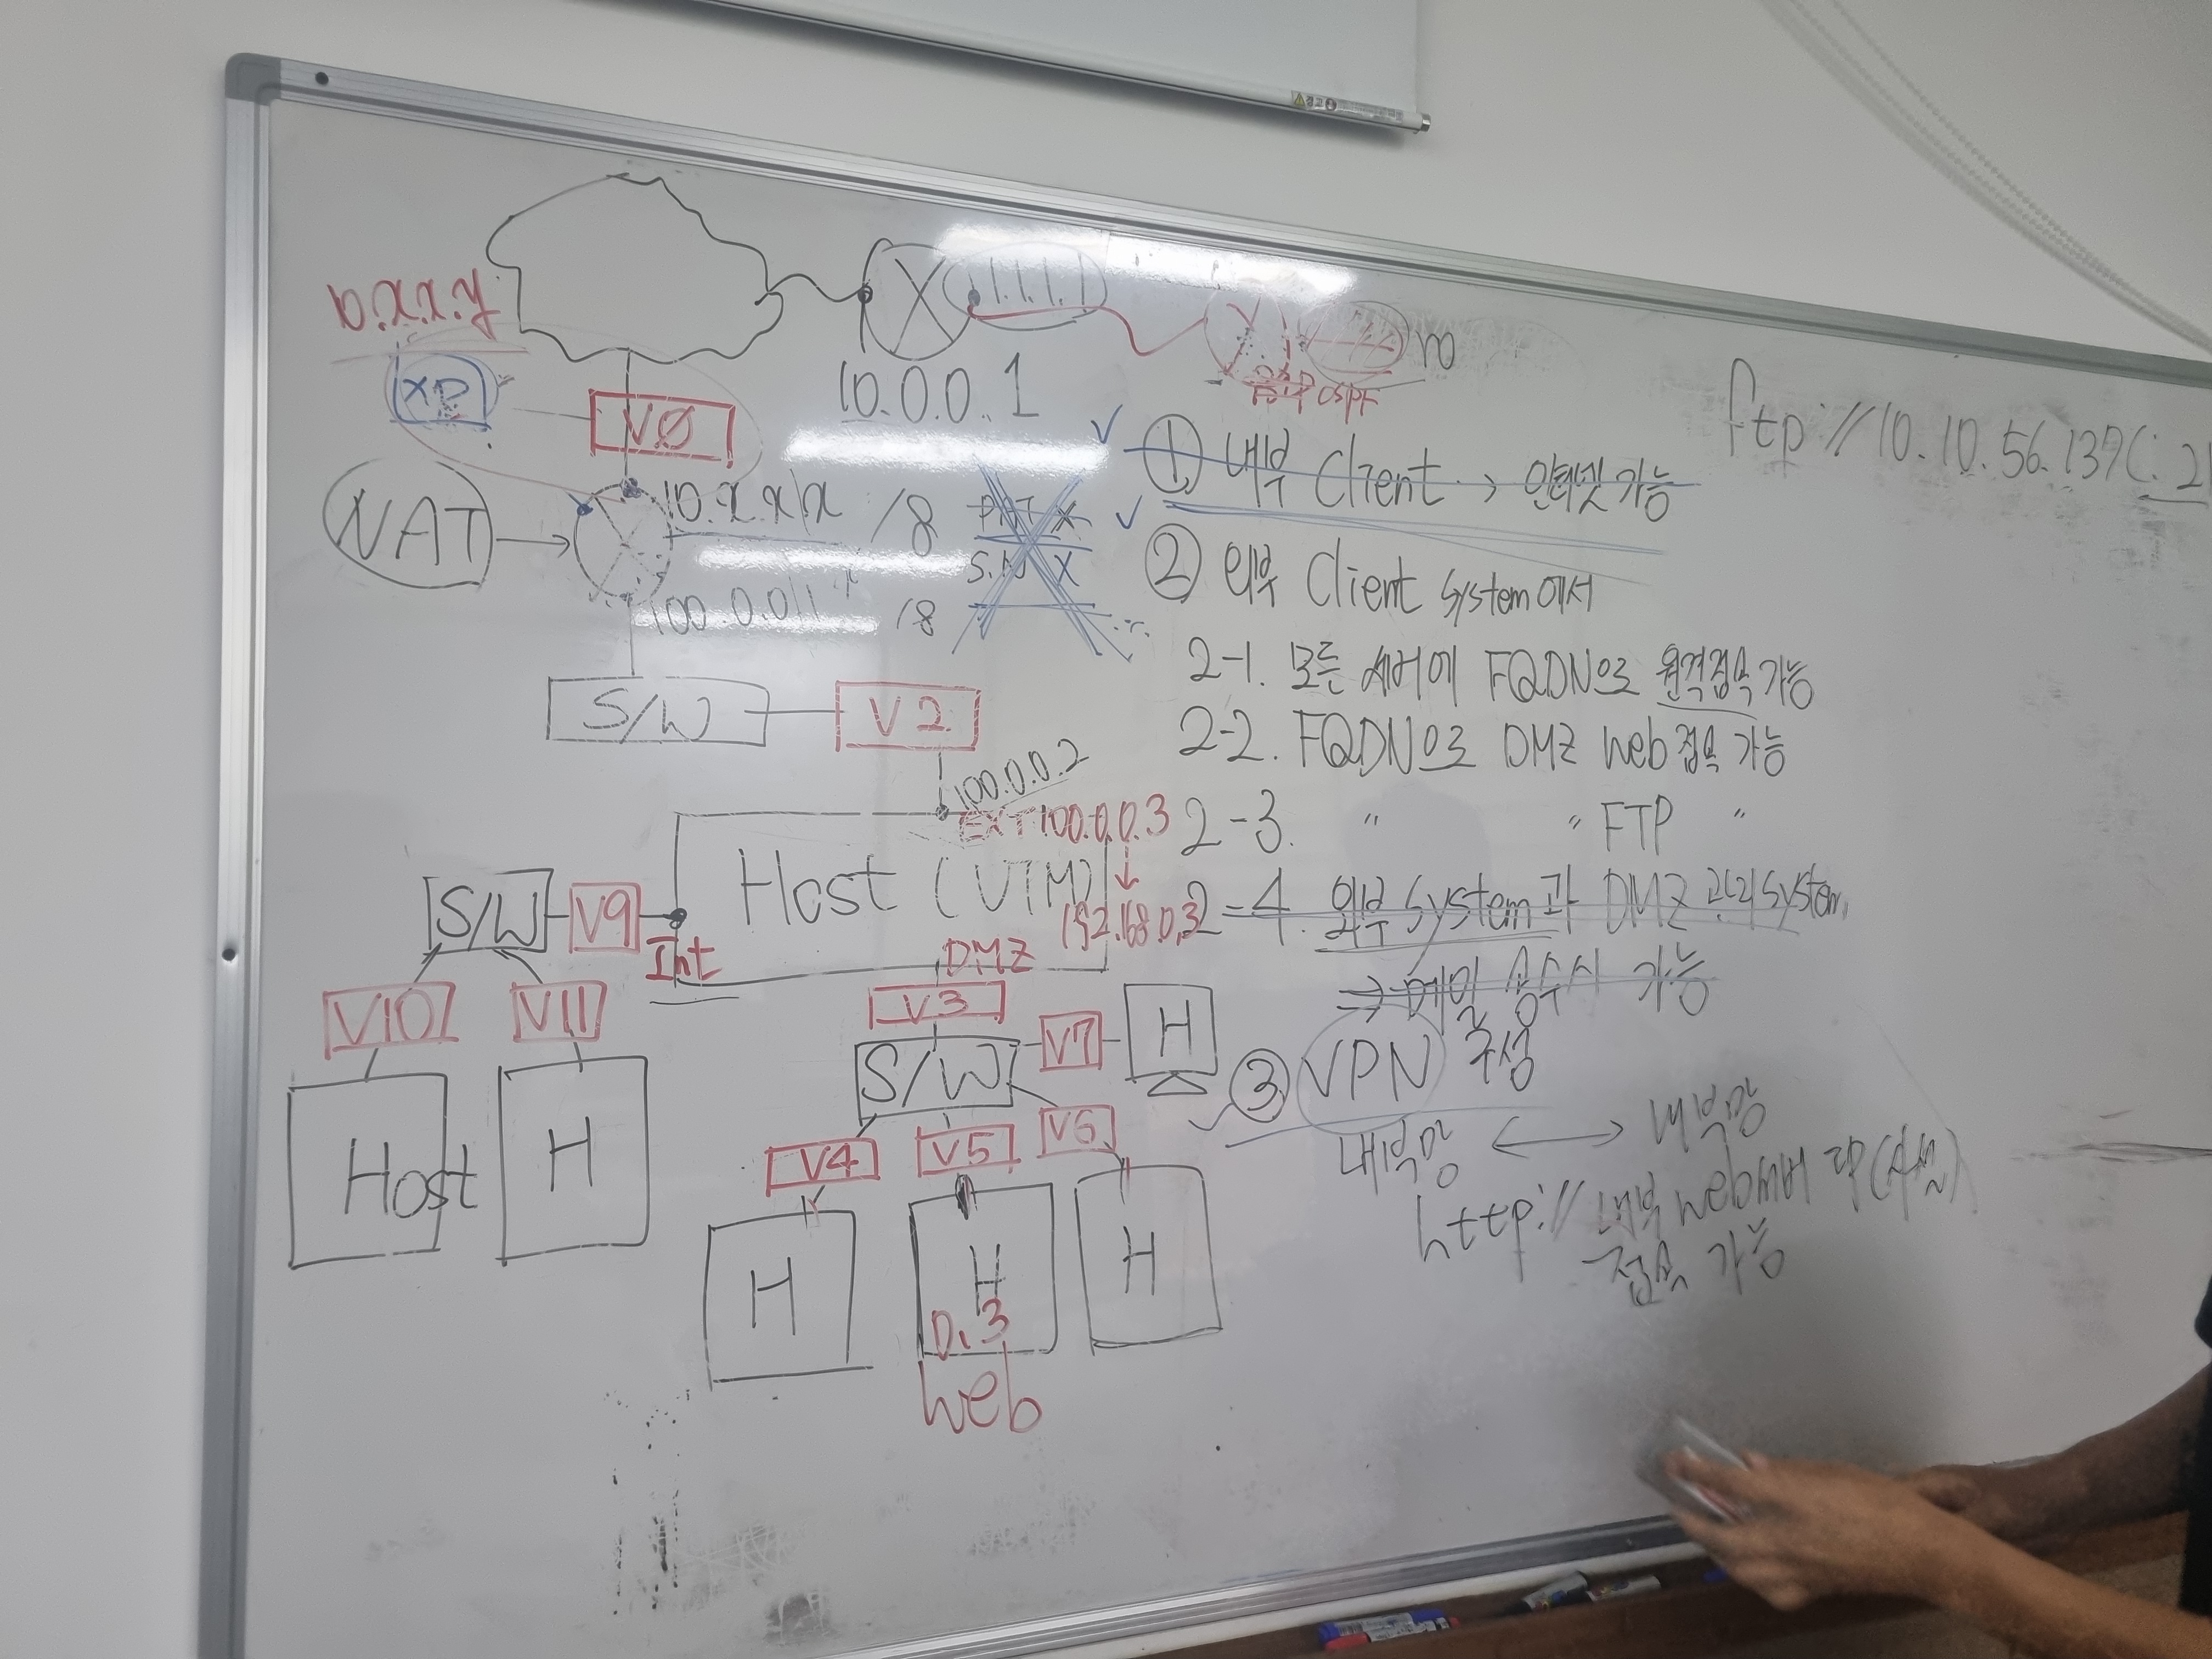 10.x.x.y
XP
V0
1.1.1.1
10.0.0.1
OSPF
NAT
10.x.x.x /8
PAT X
S.N X
100.0.0.1 /8
S/W
V2
100.0.0.2
EXT 100.0.0.3
192.168.0.3
Host (UTM)
S/W
V9
Int
DMZ
V10
V11
V3
V7
H
S/W
Host
H
V4
V5
V6
H
H
H
0.3
Web
① 내부 Client → 인터넷 가능
② 외부 Client System에서
2-1. 모든 서버에 FQDN으로 원격접속 가능
2-2. FQDN으로 DMZ Web 접속 가능
2-3. " " FTP "
2-4. 외부 System과 DMZ 관리 System
⇒ 메일 송수신 가능
③ VPN 구성
내부망 ↔ 내부망
http://내부 web서버 IP(사설)
접속 가능
ftp://10.10.56.137(:21